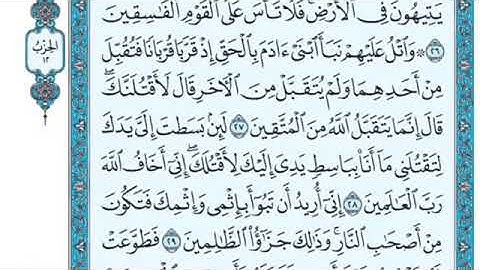 يَتِيهُونَ فِى ٱلْأَرْضِ ۚ فَلَا تَأْسَ عَلَى ٱلْقَوْمِ ٱلْفَٰسِقِينَ
﴿٢٦﴾ ۞ وَٱتْلُ عَلَيْهِمْ نَبَأَ ٱبْنَىْ ءَادَمَ بِٱلْحَقِّ إِذْ قَرَّبَا قُرْبَانًا فَتُقُبِّلَ
مِنْ أَحَدِهِمَا وَلَمْ يُتَقَبَّلْ مِنَ ٱلْءَاخَرِ قَالَ لَأَقْتُلَنَّكَ ۖ
قَالَ إِنَّمَا يَتَقَبَّلُ ٱللَّهُ مِنَ ٱلْمُتَّقِينَ ﴿٢٧﴾ لَئِنۢ بَسَطتَ إِلَىَّ يَدَكَ
لِتَقْتُلَنِى مَآ أَنَا۠ بِبَاسِطٍ يَدِىَ إِلَيْكَ لِأَقْتُلَكَ ۖ إِنِّىٓ أَخَافُ ٱللَّهَ
رَبَّ ٱلْعَٰلَمِينَ ﴿٢٨﴾ إِنِّىٓ أُرِيدُ أَن تَبُوٓأَ بِإِثْمِى وَإِثْمِكَ فَتَكُونَ
مِنْ أَصْحَٰبِ ٱلنَّارِ ۚ وَذَٰلِكَ جَزَٰٓؤُا۟ ٱلظَّٰلِمِينَ ﴿٢٩﴾ فَطَوَّعَتْ
الحِزْبُ
١٢